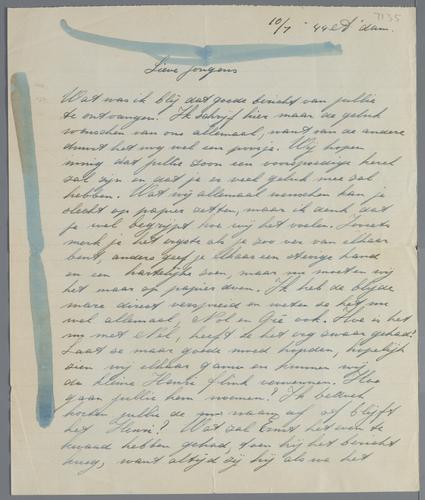 7135
10/7 '44 A'dam.
Lieve jongens
Wat was ik blij dat goede bericht van jullie
te ontvangen. Ik schrijf hier maar de geluk
wenschen van ons allemaal, want van de andere
duurt het nog wel een poosje. Wij hopen
innig dat jullie zoon een voorspoedige kerel
zal zijn en dat je er veel geluk mee zal
hebben. Wat wij allemaal wenschen kan je
slecht op papier zetten, maar ik denk dat
je wel begrijpt hoe wij het voelen. Zooiets
merk je het ergste als je zoo ver van elkaar
bent, anders geef je elkaar een stevige hand
en een hartelijke zoen, maar nu moeten wij
het maar op papier doen. Ik heb de blijde
mare direct verspreid en weten ze het nu
wel allemaal, Nol en ook. Hoe is het
nu met heeft ze het erg zwaar gehad?
Laat ze maar goede moed houden, hopelijk
zien wij elkaar gauw en kunnen wij
de kleine Henri flink verwennen. Hoe
gaan jullie hem noemen? Ik
jullie de naam af of blijft
het Henri? Wat zal Ernst het even te
kwaad hebben gehad, toen hij het bericht
kreeg, want altijd zij hij als we het